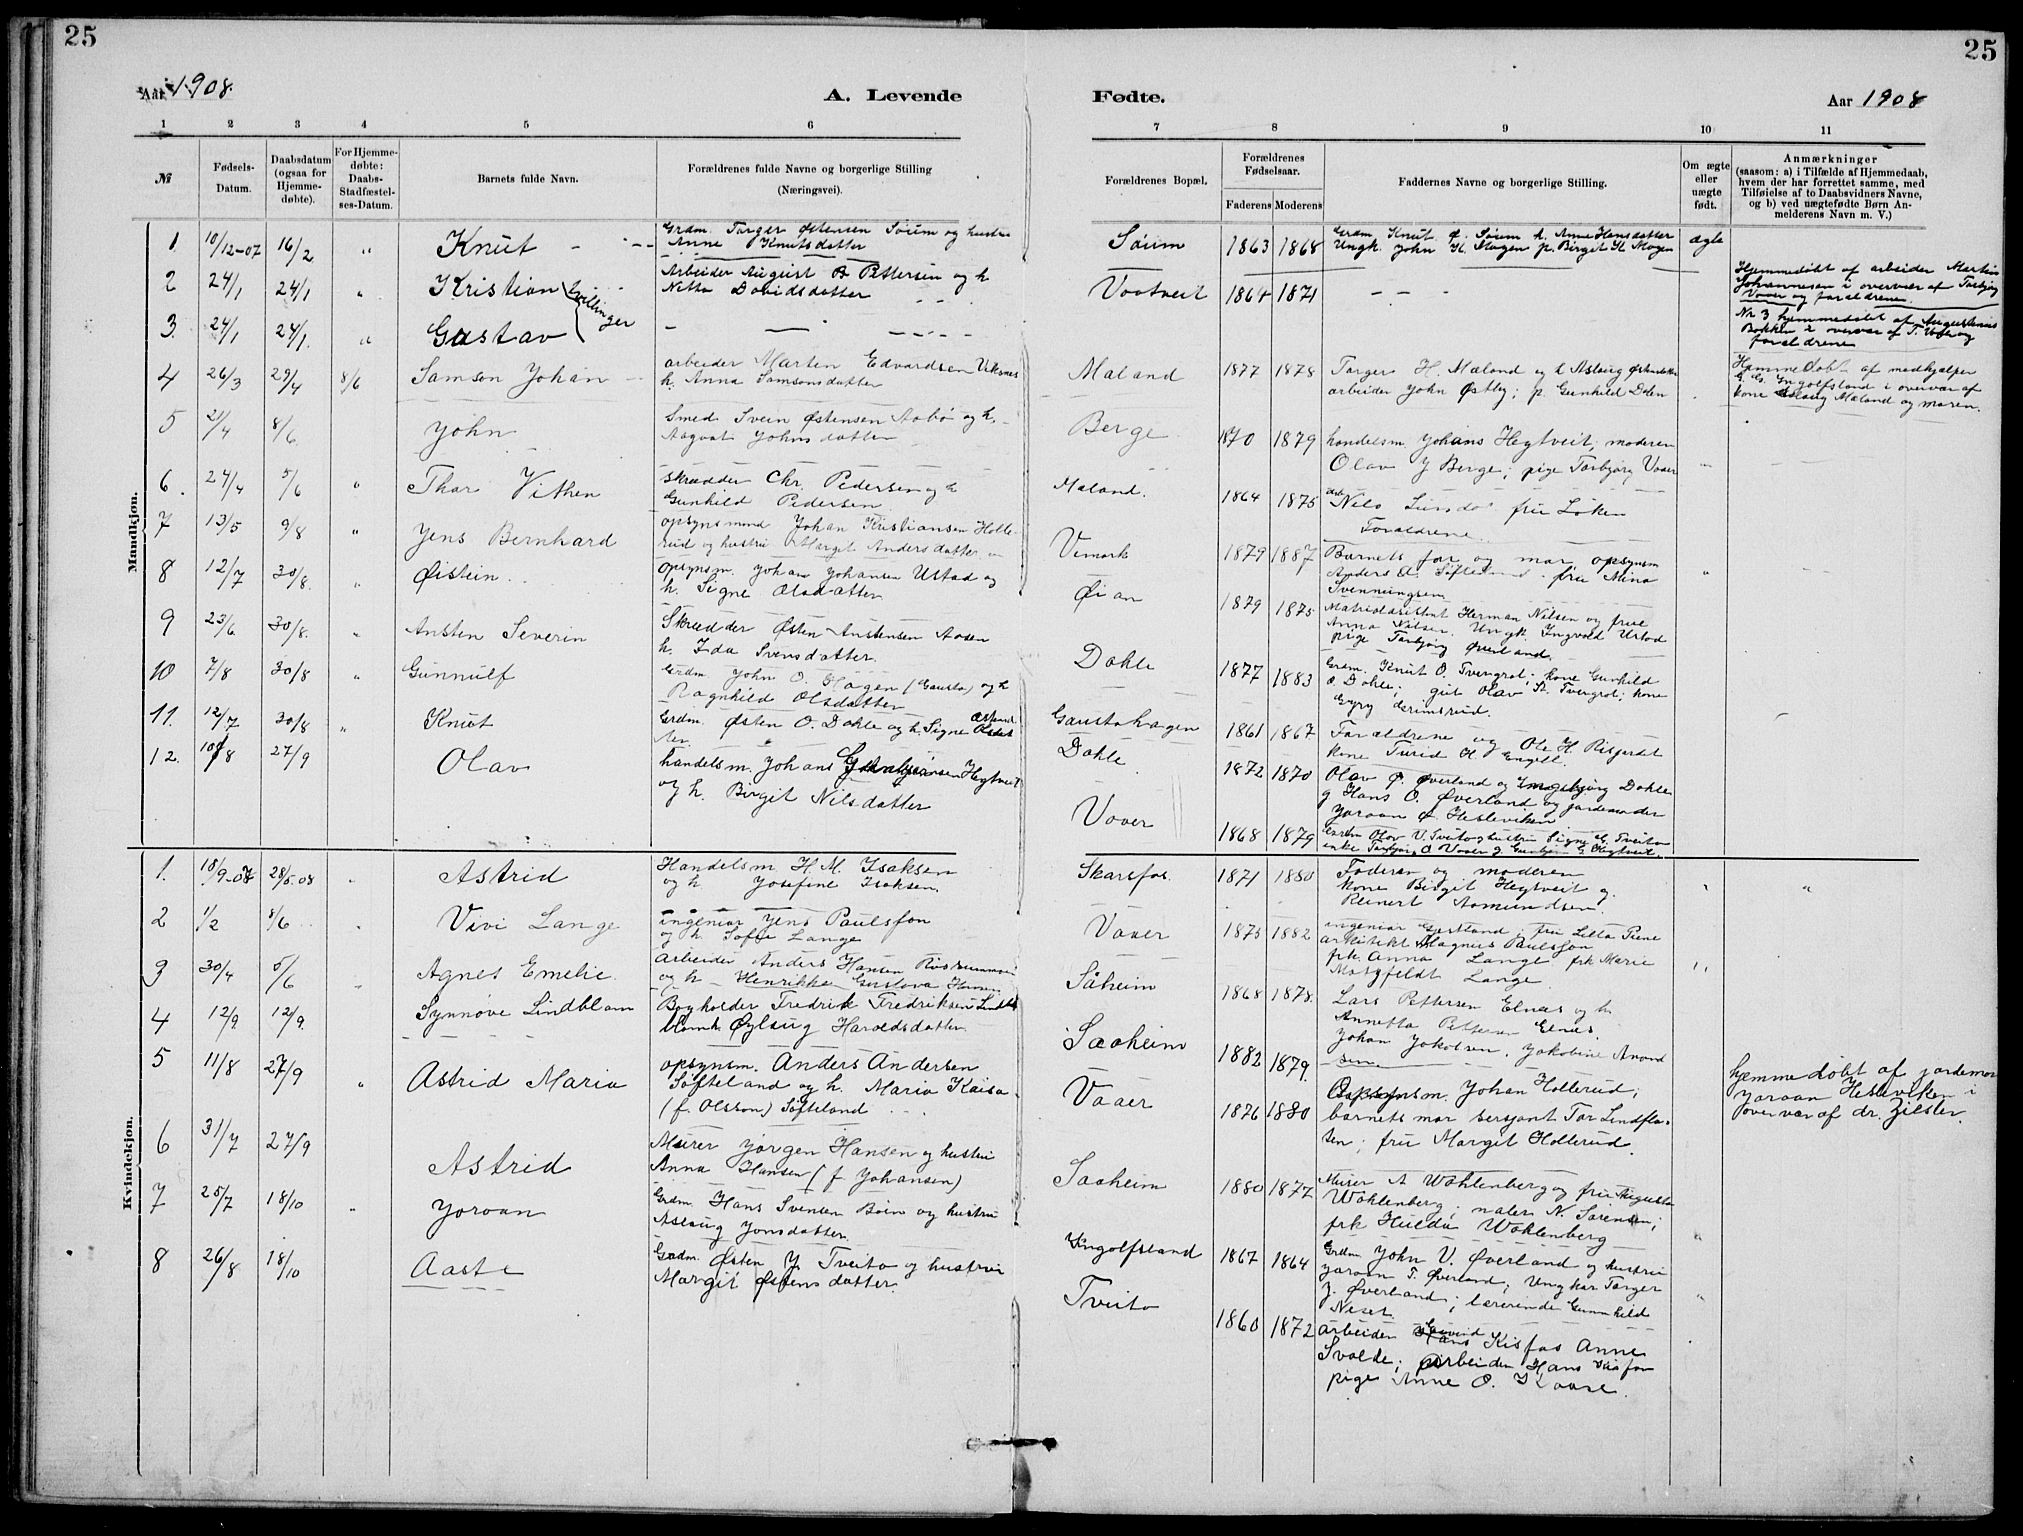 25
25
Aar 1908.
A. Levende
Fødte.
Aar 1908
1 2 3 4 5 6
7 8 9 10 11
№
Fødsels-
Datum.
Daabsdatum
(ogsaa for
Hjemme-
døbte).
For Hjemme-
døbte:
Daabs-
Stadfæstel-
ses-Datum.
Barnets fulde Navn.
Forældrenes fulde Navne og borgerlige Stilling
(Næringsvei).
Forældrenes Bopæl.
Forældrenes
Fødselsaar.
Faderens
Moderens
Faddernes Navne og borgerlige Stilling.
Om ægte
eller
uægte
født.
Anmærkninger
(saasom: a) i Tilfælde af Hjemmedaab,
hvem der har forrettet samme, med
Tilføielse af to Daabsvidners Navne,
og b) ved uægtefødte Børn An-
melderens Navn m. V.)
Mandkjøn.
1 10/12-07 16/2 " Knut
Grdm. Torger Østensen Søium og hustru
Anne Knutsdatter
Søium 1863 1868
Grdm Knut Ø. Søium h. Anne Hansdatter
Ungk. John H. Mogen p. Birgit H. Mogen
ægte
2 24/1 24/1 " Kristian
Tvillinger
Arbeider August B Pettersen og h
Netta Davidsdatter
Vaatveit 1864 1871
Hjemmedøbt af arbeider Martin
Johannesen i overvær af Torbjørg
Vaaer og forældrene.
3. 24/1 24/1. " Gustav
Nr 3 hjemmedøbt af Augustinus
Bakken i overvær af T. Vaaer og
forældrene
4 26/3 29/4 8/6 Samson Johan
arbeider Marten Edvardsen Viksnes
h. Anna Samsonsdatter
Mæland 1877 1878
Torger H. Mæland og h Aslaug Østensdatter
arbeider John Østby; p. Gunhild Dalen
Hjemmedøbt af medhjælper
G. G. Ingolfsland i overvær af
kone Aslaug Mæland og moren.
5 21/4 8/6 John
Smed Svein Østensen Aabø og h.
Aagvat Johnsdatter
Berge 1870 1879
handelsm Johans Hegtveit; moderen
Olav J Berge; pige Torbjørg Vaaer
6. 27/4 5/6 " Thor Vithen
skrædder Chr. Pedersen og h
Gunhild Pedersen
Mæland. 1864 1875
Nils Lunde fru Løken
Forældrene
7 13/5 9/8 " Jens Bernhard
opsynsmand Johan Kristiansen Holle-
rud og hustru Margit Andersdatter
Vemork 1879 1887
Barnets far og mor opsynsm
Anders A. Softeland fru Mina
Svenningsen
8 12/7 30/8. " Øistein
Opsynsm. Johan Johansen Ustad og
h. Signe Olsdatter
Øian 1879 1875
Herman Nilsen og frue
Anna Nilsen. Ungk. Ingvald Ustad
pige Torbjørg Øverland.
9 23/6 30/8. " Ansten Severin
Skrædder Østen Anstensen Aasen
h. Ida Svensdatter.
Dahle 1877 1883
Grdm. Knut O. Tvergrot; kone Gunhild
O Dahle; gut Olav K. Tvergrot; kone
Gyrg Grimsrud.
10 7/8 30/8 " Gunnulf
Grdm John O. Hagen (Gausta) og h
Ragnhild Olsdatter
Gaustahagen 1861 1867
Forældrene og Ole H. Risgerdt
kone Turid H. Engell
11. 12/7 30/8 " Knut
Grdm. Østen O. Dahle og h. Signe
Dahle 1872 1870
Olav Ø. Øverland og Ingebjørg Dahle
g Hans O. Øverland og jordemoder
Joraan Ø Hesleviken
12. 10/8 27/9 Olav
handelsm. Johans Hegtveit
og h. Birgit Nilsdatter
Vaaer 1868 1879
Grdm Olav V. Tveito og hustru Signe G. Tveito
enke Torbjørg O Vaaer g. Gunbjørn G Hegtveit
Kvindekjøn.
1. 18/9-07 28/5-08 " Astrid
Handelsm H. M. Isaksen
og h Josefine Isaksen
Skarsfos. 1871 1880
Faderen og moderen
kone Birgit Hegtveit g.
Reinert Aamundsen.
2 1/2 8/6 Vivi Lange
ingeniør Jens Paulsson
og h. Sofie Lange
Vaaer 1875 1882
arkitekt Magnus Paulsson
frk. Anna Lange frk Marie
Motzfeldt Lange
3 30/4 5/6 Agnes Emelie
arbeider Anders Hansen
og h Henrikke Gustava Hansen
Såheim 1868 1878.
Lars Pettersen Elnæs og h
Annetta Pettersen Elnæs
Johan Jakobsen. Jakobine Amund
sen
4 12/9. 12/9. Synnøve Lindblom
Bogholder Fredrik Fredriksen Lind
blom h. Øylaug Haroldsdatter
Saaheim 1882 1879.
5 11/8 27/9 " Astrid Maria
opsynsm. Anders Andersen
Softeland og h. Maria Kaisa
(f. Olsson) Softeland
Vaaer 1876 1880
Opsynsm. Johan Hollerud;
barnets mor sersjant Tor Lindflaa-
ten; fru Margit Hollerud.
hjemmedøbt af jordemor
Joraan Hesleviken i
overvær af dr. Zilsler.
6 31/7 27/9 Astrid
Murer Jørgen Hansen og hustru
Anna Hansen (f Johansen)
Saaheim 1880 1877
Murer A Wohlenberg og fru Augusta
Wohlenberg; maler N. Sørensen;
frk Hulda Wohlenberg
7 25/7 18/10 " Joraan
Grdm. Hans Svensen Bøen og hustru
Aslaug Jonsdatter
Ingolfsland 1867 1864
Grdm John V. Øverland og hustru
Joraan T. Øverland; Ungkar Torger
J. Øverland; lærerinde Gunnhild
Neset
8 26/8 18/10 Aaste
Grdm. Østen J. Tveito og hustru
Margit Østensdatter.
Tveito 1860 1872
arbeider Hans Eivind Kisfos Anne
Svalde; arbeider Hans Kisfos
pige Anne O. Kaase.